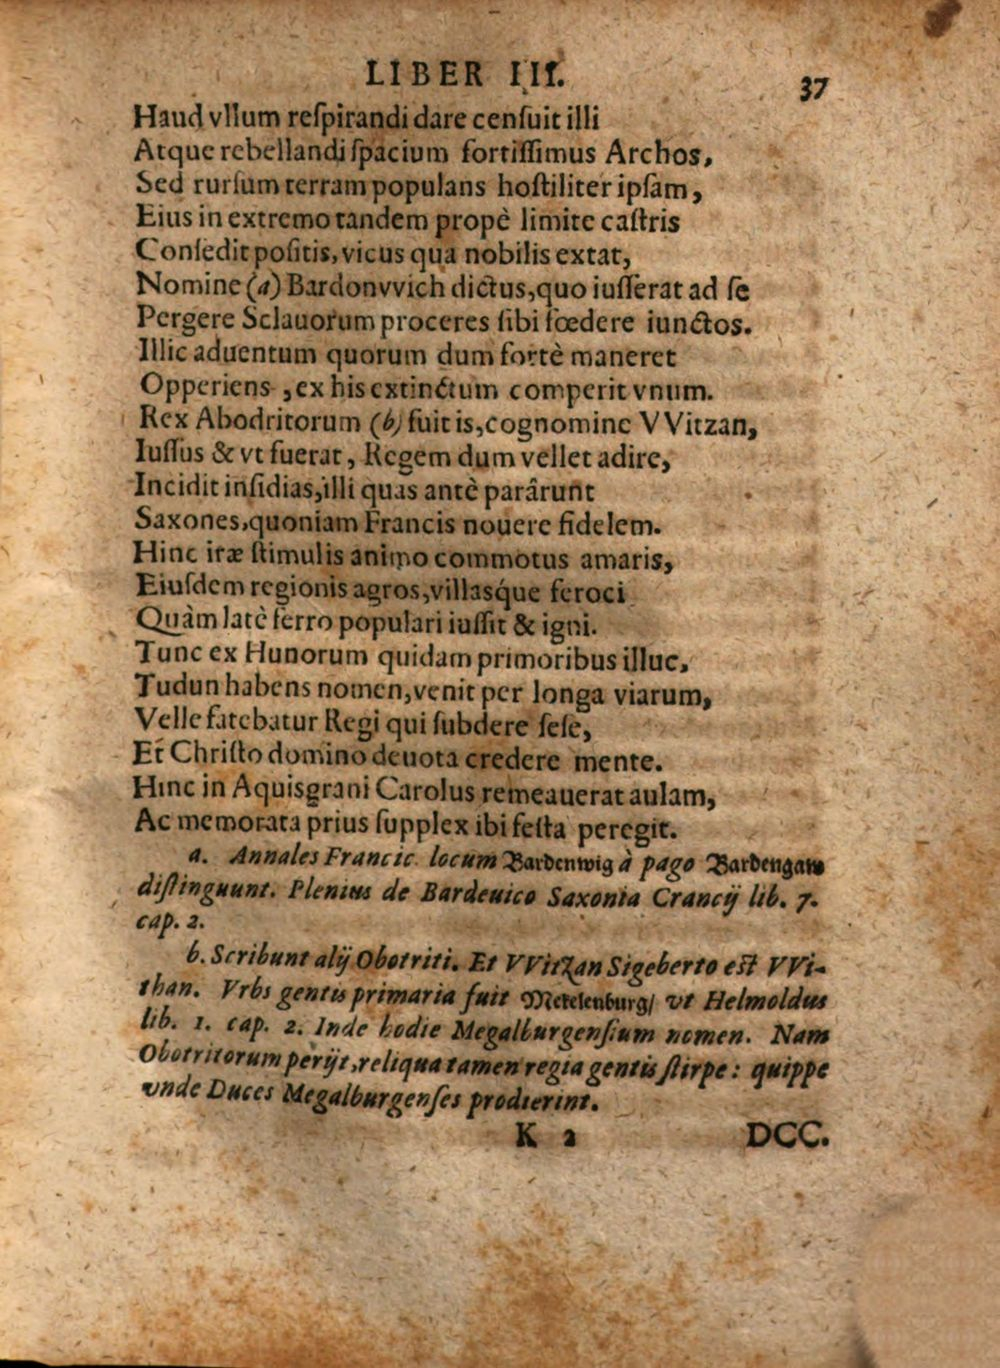 LIBER III.
37
Haud vllum reſpirandi dare cenſuit illi
Atque rebellandi ſpacium fortiſſimus Archos,
Sed rurſum terram populans hoſtiliter ipſam,
Eius in extremo tandem propè limite caſtris
Conſedit poſitis, vicus qua nobilis extat,
Nomine (a) Bardonvvich dictus, quo iuſſerat ad ſe
Pergere Sclauorum proceres ſibi fœdere iunctos.
Illic aduentum quorum dum fortè maneret
Opperiens, ex his extinctum comperit vnum.
Rex Abodritorum (b) fuit is, cognomine VVitzan,
Iuſſus & vt fuerat, Regem dum vellet adire,
Incidit inſidias, illi quas antè parârunt
Saxones, quoniam Francis nouere fidelem.
Hinc iræ ſtimulis animo commotus amaris,
Eiuſdem regionis agros, villasq́ue feroci
Quàm latè ferro populari iuſſit & igni.
Tunc ex Hunorum quidam primoribus illuc,
Tudun habens nomen, venit per longa viarum,
Velle fatebatur Regi qui ſubdere ſeſe,
Et Chriſto domino deuota credere mente.
Hinc in Aquisgrani Carolus remeauerat aulam,
Ac memorata prius ſupplex ibi feſta peregit.
a. Annales Francic. locum Bardenwig à pago Bardengaw
diſtinguunt. Plenius de Bardeuico Saxonia Crancij lib. 7.
cap. 2.
b. Scribunt alij Obotriti. Et VVitzan Sigeberto eſt VVi-
than. Vrbs gentis primaria fuit Mekelenburg/ vt Helmoldus
lib. 1. cap. 2. Inde hodie Megalburgenſium nomen. Nam
Obotritorum perijt, reliqua tamen regia gentis ſtirpe: quippe
vnde Duces Megalburgenſes prodierint.
K 2
DCC.